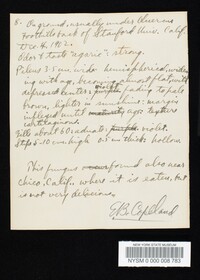 8. On ground, usually under Quercus
Foothills back of Stanford Univ., Calif.
Dec. 4, 1902.
Odor & taste agaric & strong.
Pileus 3-5 cm. wide, hemispherical, widen-
ing with age, becoming almost flat with
depressed center; violet fading to pale
brown, lighter in summer; margin
inflexed until age; together
cartilaginous.
Gills about 60 adnate; violet.
Stipe 5-10 cm. high 0.5 cm thick hollow
This fungus found also near
Chico, Calif. where it is eaten, but
is not very delicious.
E.B. Copeland
NEW YORK STATE MUSEUM
NYSM 0 000 008 783